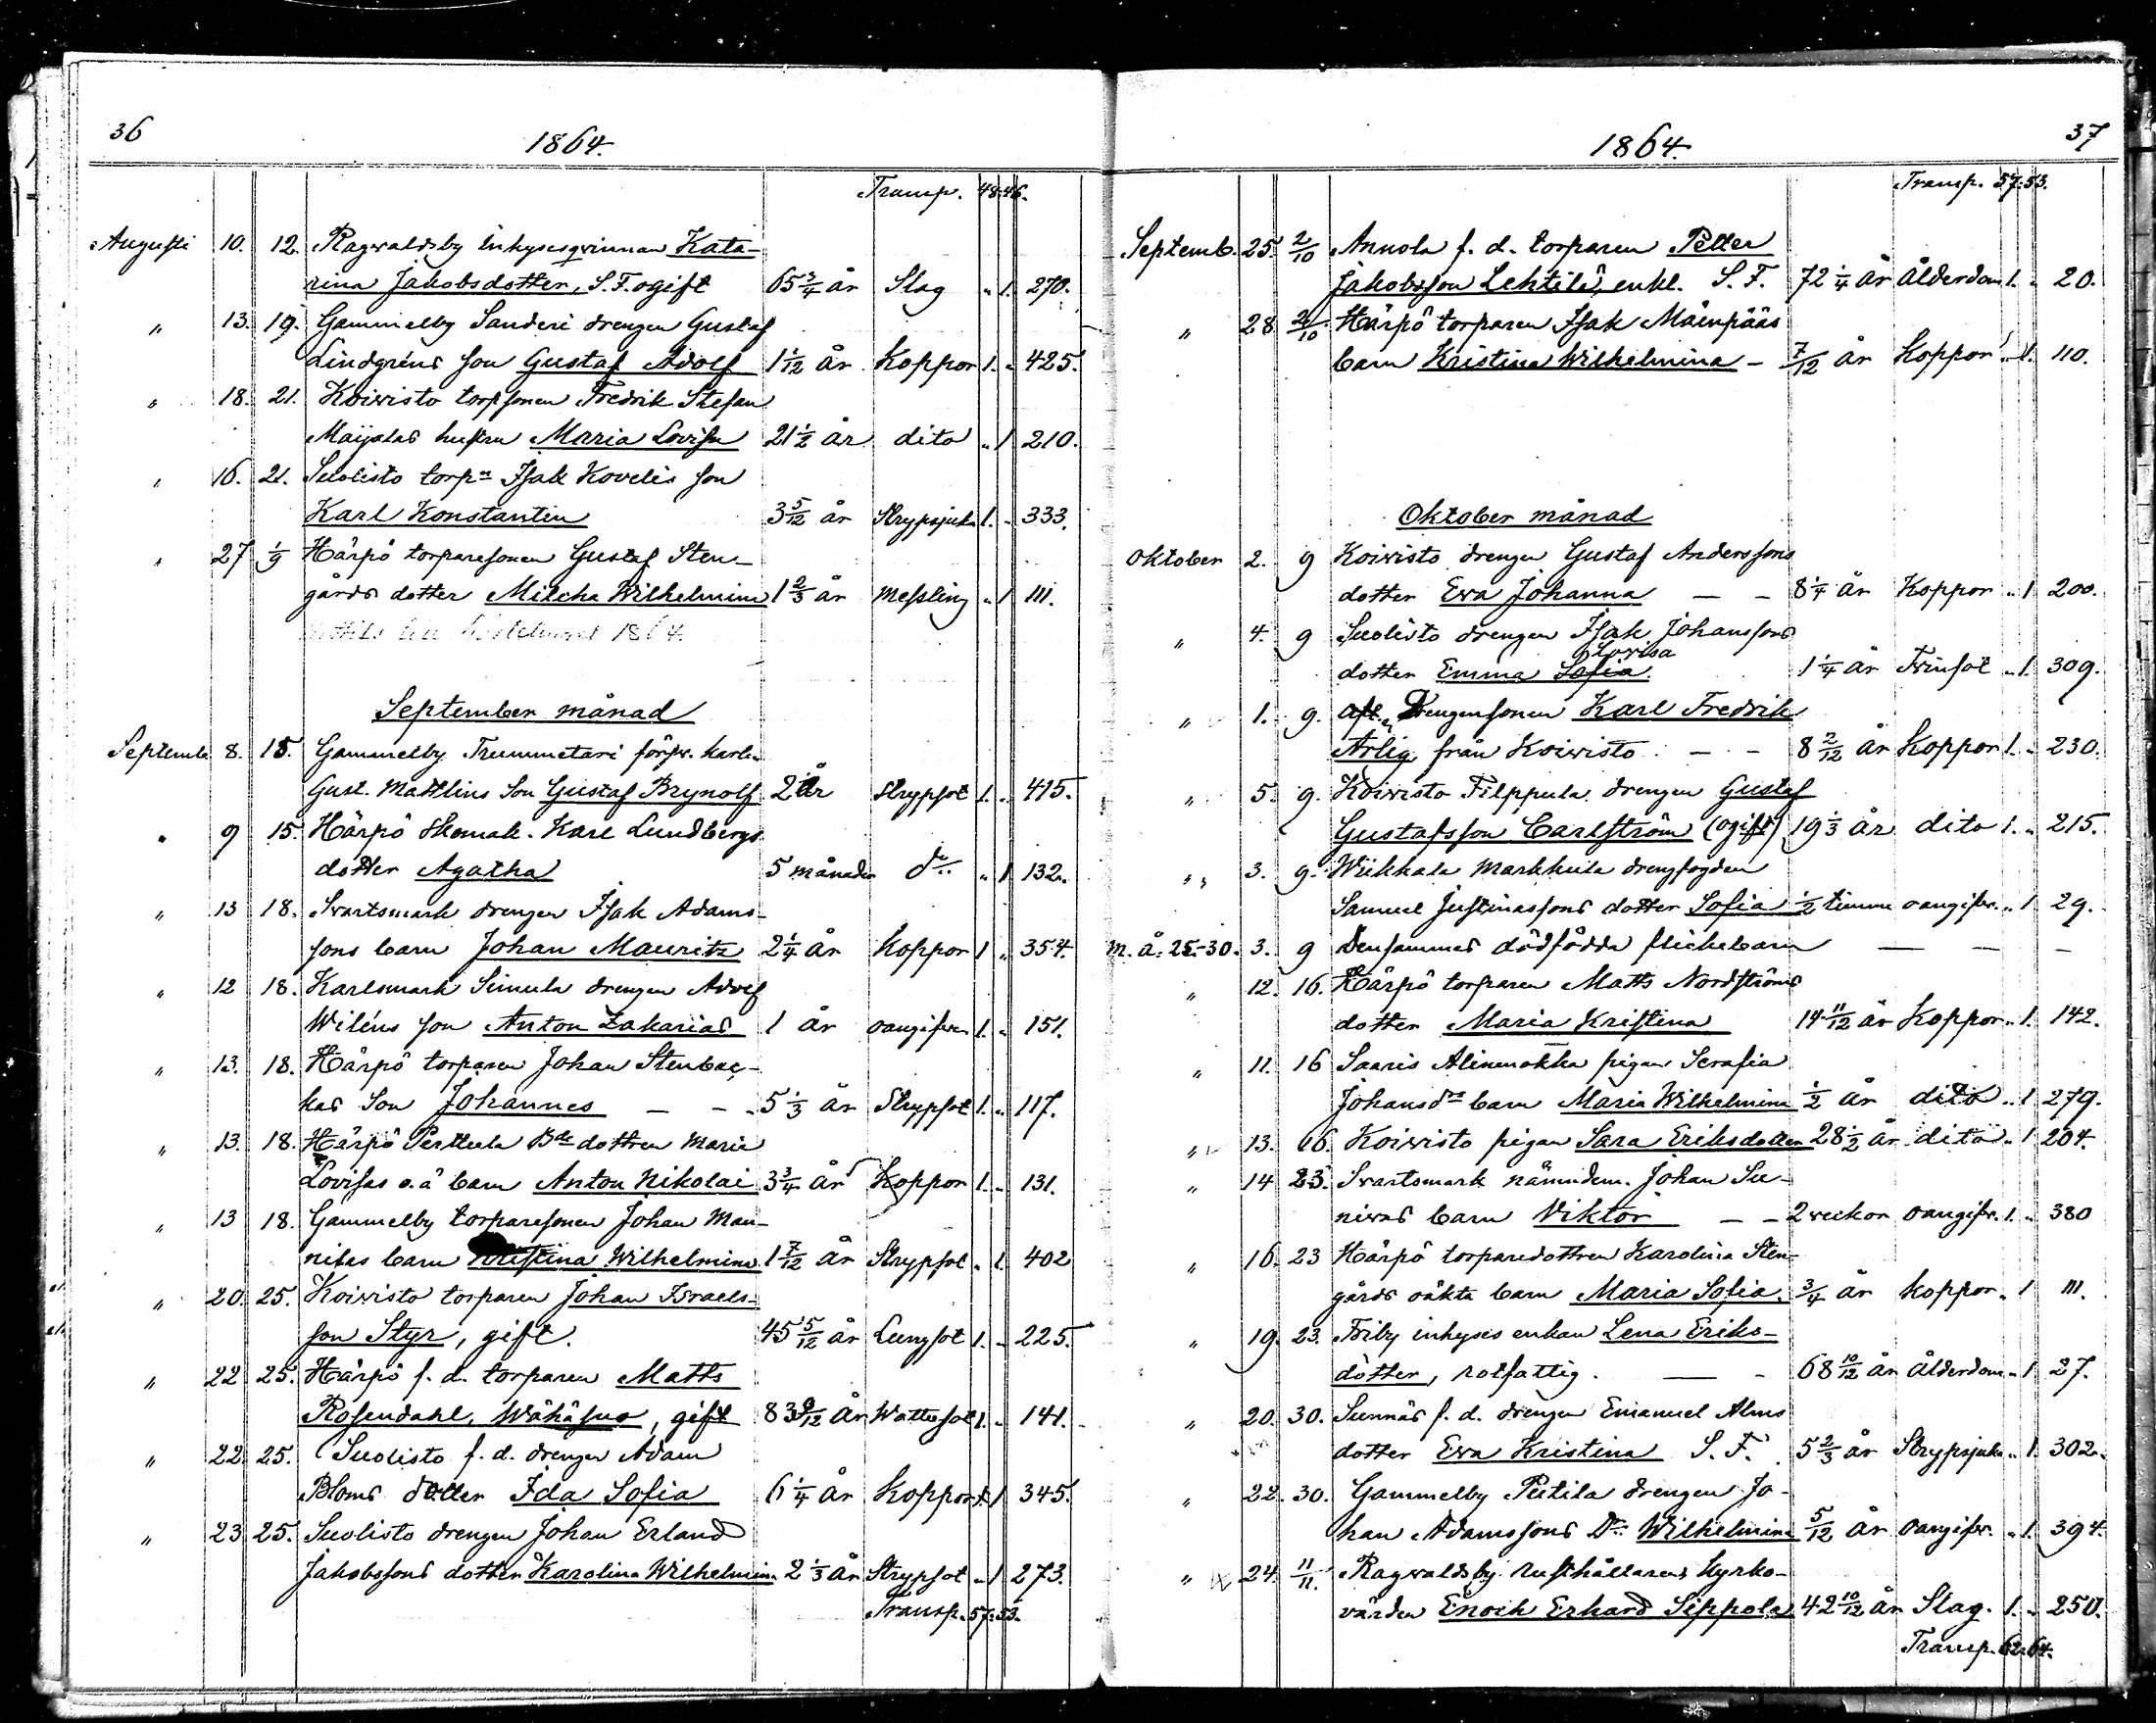 36
1864.
Transp. 48.46.
Augusti 10. 12. Ragwaldsby inhysesqwinnan Kata-
rina Jakobsdotter, S.F. ogift 65 3/4 år Slag " 1. 270.
" 13. 19. Gammelby Sanderi drengen Gustaf
Lindgréns son Gustaf Adolf 1 1/12 år Koppor 1. " 425.
" 18. 21. Koiwisto torpsonen Fredrik Stefan
Maijalas hustru Maria Lovisa 21 1/2 år dito " 1 210.
" 16. 21. Suolisto torpn Isak Kovelis son
Karl Konstantin 3 5/12 år Strypsjuka 1. " 333.
" 27 1/9 Härpö torparesonen Gustaf Sten-
gårds dotter Milcha Wilhelmina 1 2/3 år Messling " 1 111.
1864.
September månad
Septemb. 8. 15. Gammelby Trummetari förpr. karln
Gust. Mattlins Son Gustaf Brynolf 2 år Strypsot 1. " 415.
" 9 15. Härpö Skomak. Karl Lundbergs
dotter Agatha 5 månader do " 1 132.
" 13 18. Svartsmark drengen Isak Adams-
sons barn Johan Mauritz 2 1/4 år Koppor 1 " 354.
" 12 18. Karlsmark Simula drengen Adolf
Wiléns son Anton Zakarias 1 år oangifven 1. " 151.
" 13. 18. Härpö torparen Johan Stenbac-
kas Son Johannes — — 5 1/3 år Strypsot 1. " 117.
" 13. 18. Härpö Perttula Bde dottren Maria
Lovisas o.ä barn Anton Nikolai 3 3/4 år Koppor 1. " 131.
" 13 18. Gammelby torparesonen Johan Man-
nilas barn Kristina Wilhelmina 1 7/12 år Strypsot " 1. 402
" 20. 25. Koiwisto torparen Johan Israels-
son Styr, gift. 45 5/12 år Lungsot 1. " 225.
" 22 25. Härpö f. d. torparen Matts
Rosendahl, Wähäsuo, gift 83 9/12 år Wattusot 1. " 141.
" 22 25. Suolisto f. d. drengen Adam
Bloms dotter Ida Sofia 6 1/4 år Koppor " 1 345.
" 23 25. Suolisto drengen Johan Erland
Jakobssons dotter Karolina Wilhelmina 2 1/3 år Strypsot " 1 273.
Transp. 57.53.
37
1864.
Transp. 57.53.
Septemb. 25. 2/10 Annola f. d. torparen Petter
Jakobsson Lehtilä, enkl. S. F. 72 1/4 år Ålderdom 1. " 20.
" 28 2/10 Härpö torparen Isak Mäenpääs
barn Kristina Wilhelmina – 7/12 år Koppor " 1. 110.
Oktober månad
Oktober 2. 9 Koiwisto drengen Gustaf Anderssons
dotter Eva Johanna — — 8 1/4 år Koppor " 1 200.
" 4. 9 Suolisto drengen Isak Johanssons
Lovisa
dotter Emma Sofia. 1 1/4 år Twinsot " 1. 309.
" 1. 9. Drengensonen Karl Fredrik
Arlig från Koiwisto — – 8 2/12 år Koppor 1. " 230.
" 5. 9. Koiwisto Filppula drengen Gustaf
Gustafsson Carlström (ogift) 19 1/3 år dito 1. " 215.
" 3. 9. Wiikkala Markkula drengfogden
Samuel Justinassons dotter Sofia 1/2 timme oangifv. " 1 29.
m. å. 25-30. 3. 9 Densammas dödfödda flickebarn — — –
" 12. 16. Härpö torparen Matts Nordströms
dotter Maria Kristina 14 11/12 år Koppor " 1. 142.
" 11. 16 Saaris Alinenokka pigan Serafia
Johansdrs barn Maria Wilhelmina 1/2 år dito " 1 279.
" 13. 16. Koiwisto pigan Sara Eriksdotter 28 1/2 år dito " 1 204.
" 14 23. Svartsmark nämndem. Johan Su-
niwas barn Viktor — — 2 veckor oangifv. 1. " 380
" 16. 23 Härpö torparedottren Karolina Sten-
gårds oäkta barn Maria Sofia. 3/4 år koppor " 1 111.
" 19. 23. Friby inhyses enkan Lena Eriks-
dotter, rotfattig. — – 68 10/12 år Ålderdom " 1 27.
" 20. 30. Sunnäs f. d. drengen Emanuel Alms
dotter Eva Kristina S. F. 5 2/3 år Strypsjuka " 1. 302.
" 22. 30. Gammelby Piitila drengen Jo-
han Adamssons Dr Wilhelmina 5/12 år oangifv. " 1. 394.
" 24. 11/11. Ragwaldsby rusthållaren, kyrko-
värden Enoch Erhard Seppola 42 10/12 år Slag. 1. " 250.
Transp. 62.64.